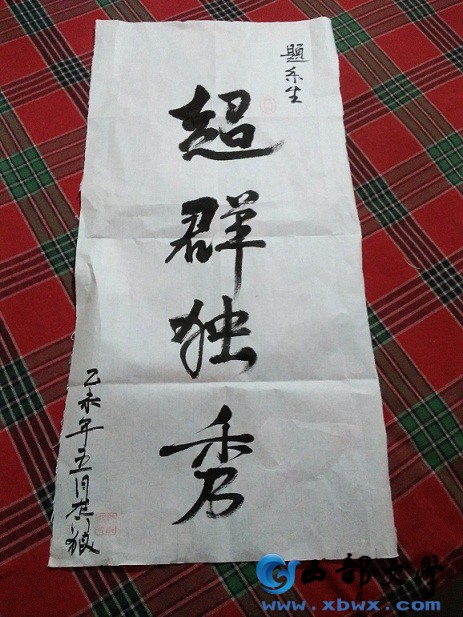 题东生
超群独秀
乙未年五月苍狼
西部文学
www.xbwx.com